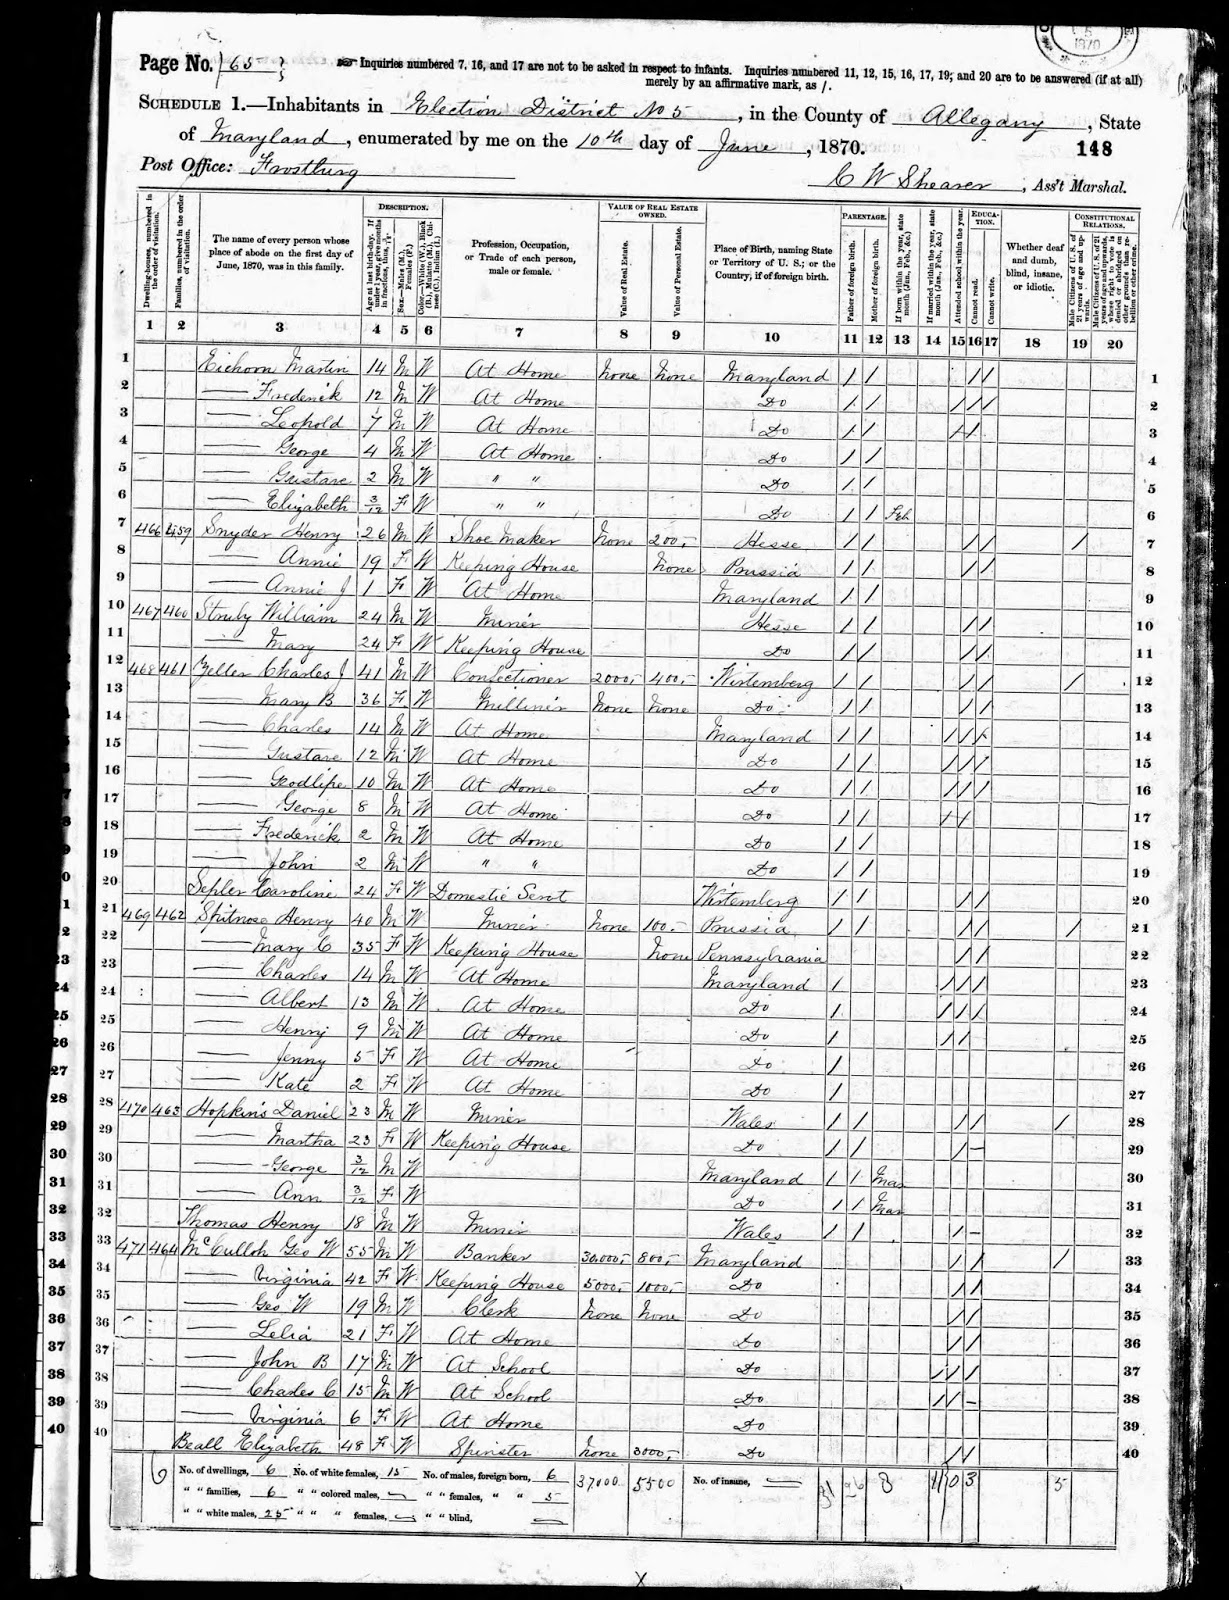 1870
Page No. 65
Inquiries numbered 7, 16, and 17 are not to be asked in respect to infants. Inquiries numbered 11, 12, 15, 16, 17, 19, and 20 are to be answered (if at all)
merely by an affirmative mark, as /.
SCHEDULE 1.—Inhabitants in Election District No 5, in the County of Allegany, State
of Maryland, enumerated by me on the 10th day of June, 1870.
148
Post Office: Frostburg
C W Shearer, Ass't Marshal.
Dwelling-houses, numbered in the order of visitation.
Families, numbered in the order of visitation.
The name of every person whose place of abode on the first day of June, 1870, was in this family.
DESCRIPTION.
Age at last birth-day. If under 1 year, give months in fractions, thus, 3/12
Sex.—Males (M.), Females (F.)
Color.—White (W.), Black (B.), Mulatto (M.), Chinese (C.), Indian (I.)
Profession, Occupation, or Trade of each person, male or female.
VALUE OF REAL ESTATE OWNED.
Value of Real Estate.
Value of Personal Estate.
Place of Birth, naming State or Territory of U. S.; or the Country, if of foreign birth.
PARENTAGE.
Father of foreign birth.
Mother of foreign birth.
If born within the year, state month (Jan., Feb., &c.)
If married within the year, state month (Jan., Feb., &c.)
Attended school within the year.
EDUCATION.
Cannot read.
Cannot write.
Whether deaf and dumb, blind, insane, or idiotic.
CONSTITUTIONAL RELATIONS.
Male Citizens of U. S. of 21 years of age and upwards.
Male Citizens of U. S. of 21 years of age and upwards, whose right to vote is denied or abridged on other grounds than rebellion or other crime.
1 2 3 4 5 6 7 8 9 10 11 12 13 14 15 16 17 18 19 20
1 Eichorn Martin 14 M W At Home None None Maryland / / / / 1
2 — Frederick 12 M W At Home Do / / / / / 2
3 — Leopold 7 M W At Home Do / / / / 3
4 — George 4 M W At Home Do / / 4
5 — Gustave 2 M W " " Do / / 5
6 — Elizabeth 3/12 F W " " Do / / Feb 6
7 466 459 Snyder Henry 26 M W Shoe Maker None 200,- Hesse / / / / / 7
8 — Annie 19 F W Keeping House None Prussia / / / / 8
9 — Annie J 1 F W At Home Maryland / / 9
10 467 460 Struby William 24 M W Miner Hesse / / / / 10
11 — Mary 24 F W Keeping House Do / / / / 11
12 468 461 Zeller Charles J 41 M W Confectioner 2000,- 400,- Wirtemberg / / / / / 12
13 — Mary B 36 F W Millinir None None Do / / / / 13
14 — Charles 14 M W At Home Maryland / / / / / 14
15 — Gustave 12 M W At Home Do / / / / / 15
16 — Godlipe 10 M W At Home Do / / / / / 16
17 — George 8 M W At Home Do / / / / 17
18 — Frederick 2 M W At Home Do / / 18
19 — John 2 M W " " Do / / 19
20 Sepler Caroline 24 F W Domestic Servt Wirtemberg / / / / 20
21 469 462 Spitnose Henry 40 M W Miner None 100.- Prussia / / / / / 21
22 — Mary C 35 F W Keeping House None Pennsylvania / / 22
23 — Charles 14 M W At Home Maryland / / / / 23
24 — Albert 13 M W At Home Do / / / / 24
25 — Henry 9 M W At Home Do / / / 25
26 — Jenny 5 F W At Home Do / 26
27 — Kate 2 F W At Home Do / 27
28 470 463 Hopkins Daniel 23 M W Miner Wales / / / / / 28
29 — Martha 23 F W Keeping House Do / / / - 29
30 — George 3/12 M W Maryland / / Mar 30
31 — Ann 3/12 F W Do / / Mar 31
32 Thomas Henry 18 M W Minir Wales / / / - 32
33 471 464 McCulloh Geo W 55 M W Banker 30,000,- 800,- Maryland / / / 33
34 — Virginia 42 F W Keeping House 5000,- 1000,- Do / / 34
35 — Geo W 19 M W Clerk None None Do / / 35
36 — Lelia 21 F W At Home Do / / 36
37 — John B 17 M W At School Do / / / 37
38 — Charles C 15 M W At School Do / / - 38
39 — Virginia 6 F W At Home Do 39
40 Beall Elizabeth 48 F W Spinster None 3000,- Do / / 40
No. of dwellings, 6 No. of white females, 15 No. of males, foreign born, 6 37,000 5500 No. of insane, —
" " families, 6 " " colored males, — " " females, " " 5
" " white males, 25 " " " females, — " " blind, —
5